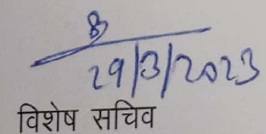 29/3/2023
विशेष सचिव